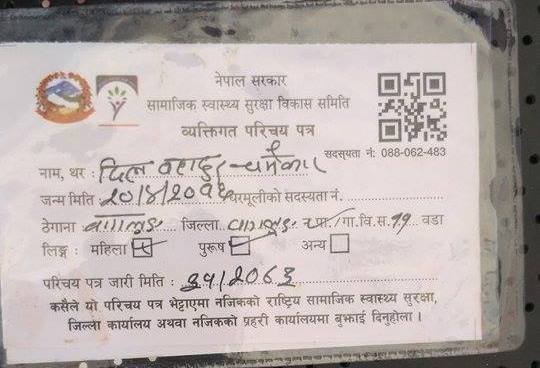 नेपाल सरकार
सामाजिक स्वास्थ्य सुरक्षा विकास समिति
व्यक्तिगत परिचय पत्र
सदस्यता नं: 088-062-483
नाम, थर : दिल बहादुर
जन्म मिति : घरमूलीको सदस्यता नं.
ठेगाना बागलुङ जिल्ला बागलुङ न.पा./गा.वि.स. ११ वडा
लिङ्ग : महिला पुरूष अन्य
परिचय पत्र जारी मिति :
कसैले यो परिचय पत्र भेट्टाएमा नजिकको राष्ट्रिय सामाजिक स्वास्थ्य सुरक्षा,
जिल्ला कार्यालय अथवा नजिकको प्रहरी कार्यालयमा बुझाई दिनुहोला ।